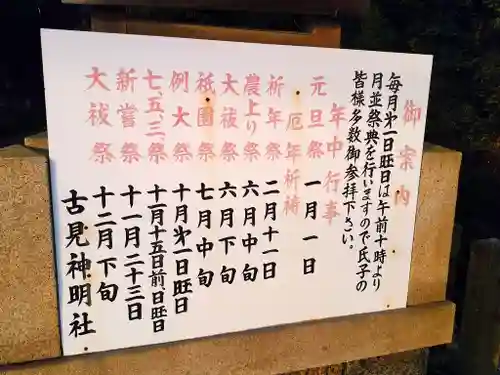 御案内
毎月第一日旺日は午前十時より
月並祭典を行いますので氏子の
皆様多数御参拝下さい。
年中行事
元旦祭 一月一日
厄年祈祷
祈年祭 二月十一日
農上り祭 六月中旬
大祓祭 六月下旬
祇園祭 七月中旬
例大祭 十月第一日旺日
七、五、三、祭 十一月十五日前、日旺日
新嘗祭 十一月二十三日
大祓祭 十二月下旬
古見神明社